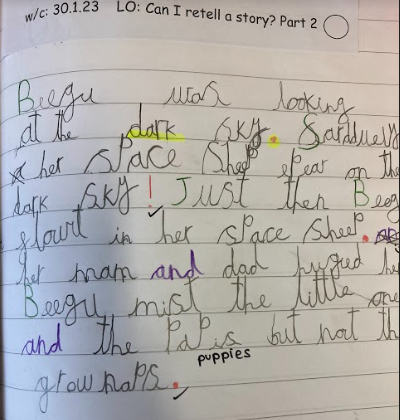 w/c: 30.1.23 LO: Can I retell a story? Part 2
Beegu was looking
at the dark sky. Sardduely
her space sheep epear on the
dark sky! Just then Beeg
flowt in her space sheep.
her mam and dad huged he
Beegu mist the little one
and the PaPis but not th
puppies
grownaps.